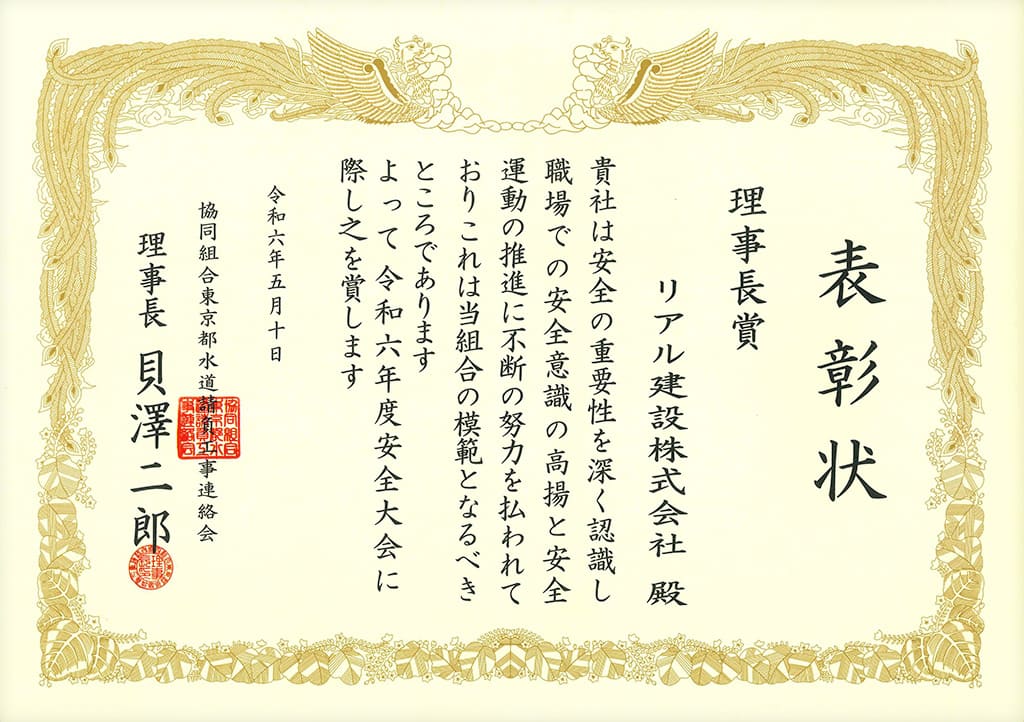 表彰状
理事長賞
リアル建設株式会社 殿
貴社は安全の重要性を深く認識し
職場での安全意識の高揚と安全
運動の推進に不断の努力を払われて
おりこれは当組合の模範となるべき
ところであります
よって令和六年度安全大会に
際し之を賞します
令和六年五月十日
協同組合東京都水道請負工事連絡会
理事長 貝澤二郎